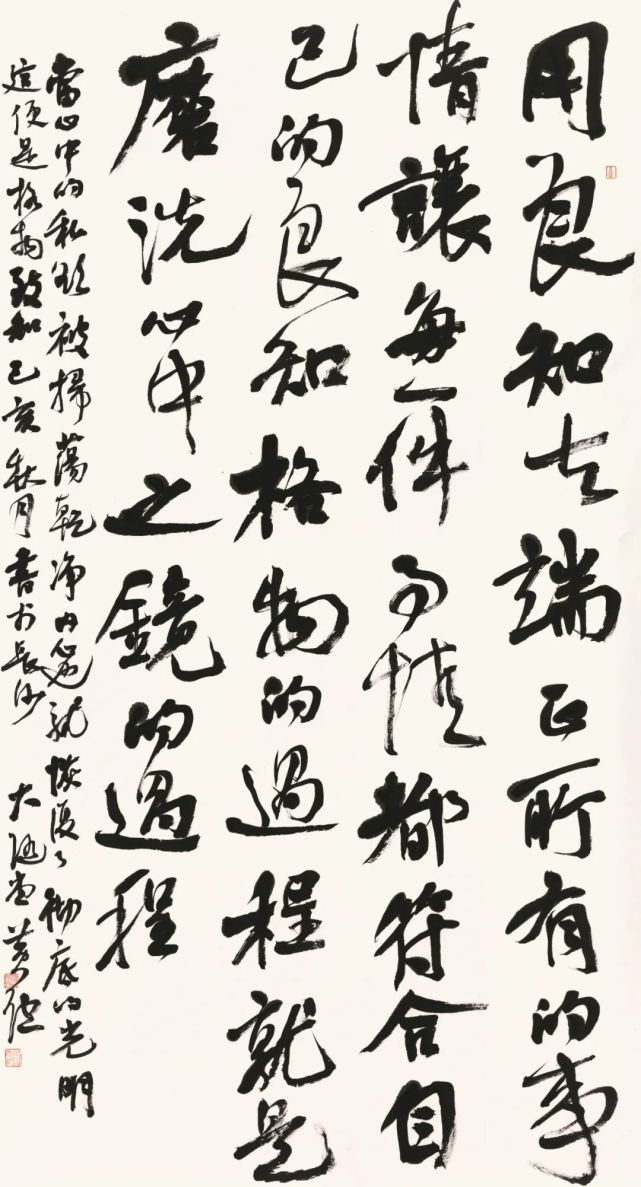 用良知去端正所有的事
情讓每一件事情都符合自
己的良知格物的過程就是
磨洗心中之鏡的過程
當心中的私欲被掃蕩乾净内心就恢復了彻底的光明
這便是格物致知己亥秋月書於長沙 大随堂黄德